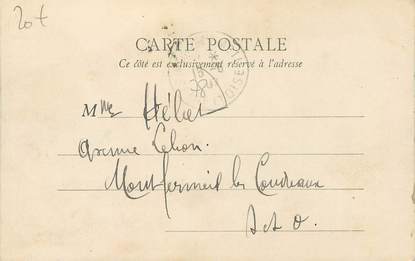 20f
CARTE POSTALE
Ce côté est exclusivement réservé à l'adresse
Mme Hébert
Avenue Lebon.
Montfermeil les Coudreaux
S et O.